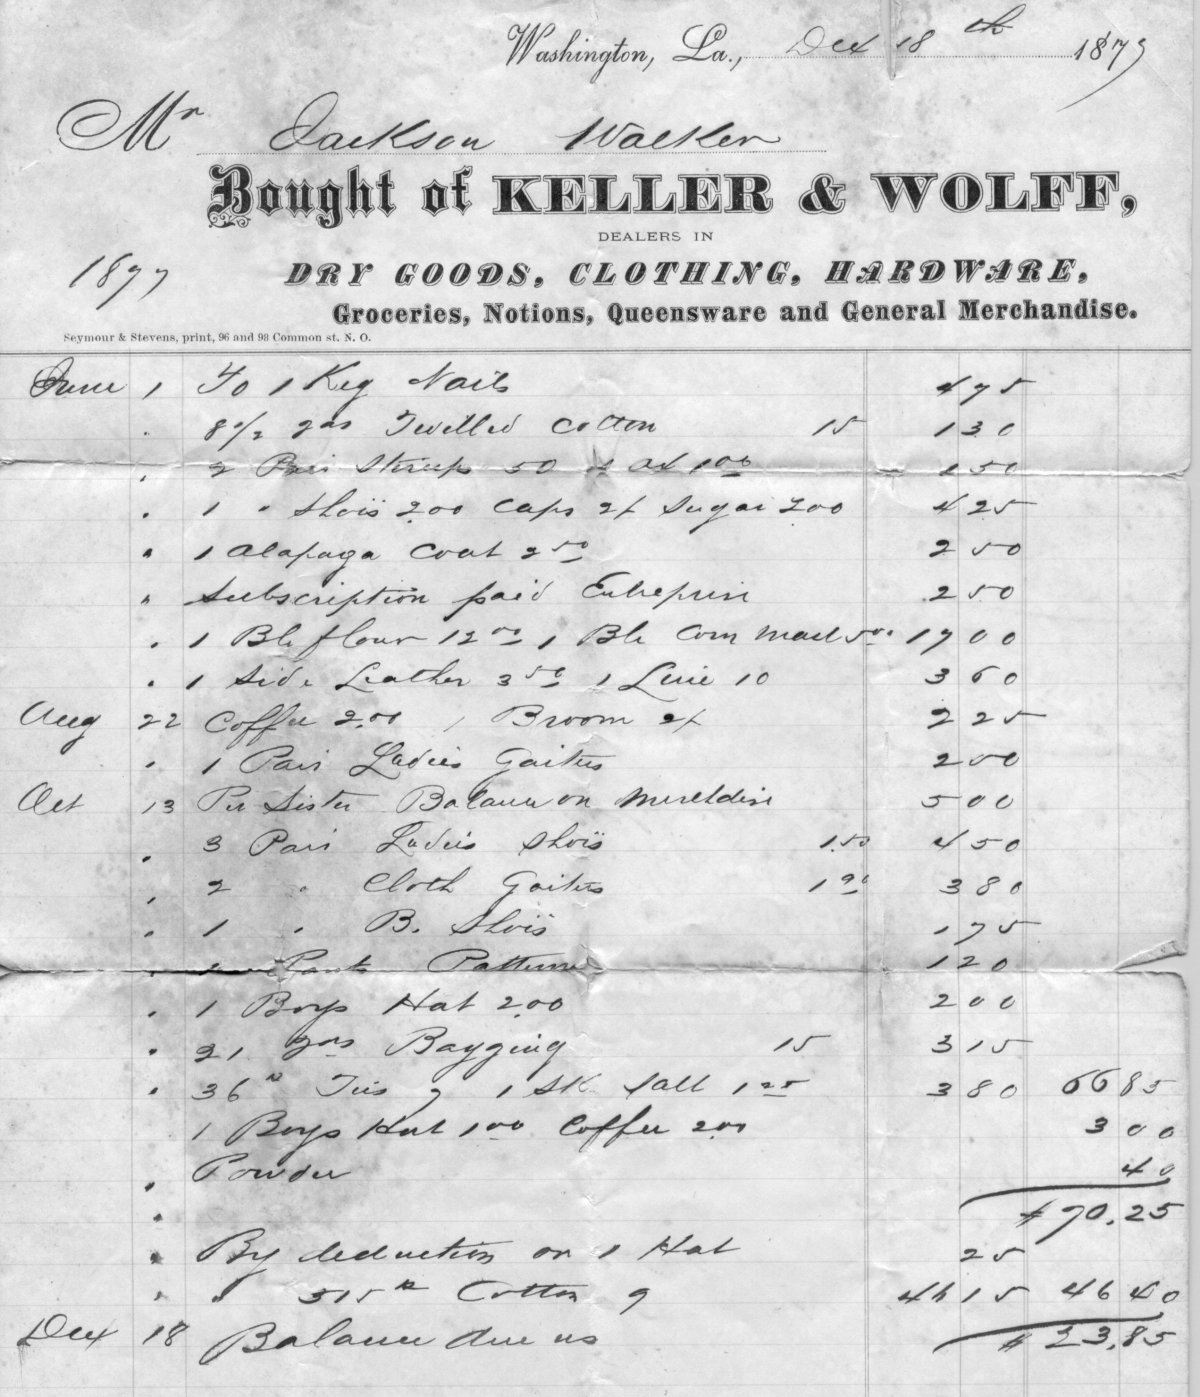 Washington, La., Dec 18th 1877
Mr Jackson Walker
Bought of KELLER & WOLFF,
DEALERS IN
1877 DRY GOODS, CLOTHING, HARDWARE,
Groceries, Notions, Queensware and General Merchandise.
Seymour & Stevens, print, 96 and 98 Common st. N. O.
June 1 To 1 Keg Nails 475
" 8 1/2 yds Twilled Cotton 15 130
" 2 Pair Stirups 50 ax 1.00 150
" 1 " Shois 2.00 Caps 2/ Sugar 2.00 425
" 1 Alapaga Coat 2.50 250
" Subscription paid Enterprise 250
" 1 Bl flour 12.00 1 Bl Corn Meal 5.00 1700
" 1 Side Leather 3.50 1 Line 10 360
Aug 22 Coffee 2.00 1 Broom 2/ 225
" 1 Pair Ladies Gaiters 200
Oct 13 Per Sister Balance on Merchdise 500
" 3 Pair Ladies Shois 1.50 450
" 2 " Cloth Gaiters 1.90 380
" 1 " B. Shois 175
" 1 Pants Patterns 120
" 1 Boys Hat 2.00 200
" 21 yds Bagging 15 315
" 36 Ties 7 1 SK Salt 1.25 380 6685
1 Boys Hat 1.00 Coffee 2.00 300
" Powder 40
" $70.25
" By deduction on 1 Hat 25
" " 515 Cotton 9 4615 4640
Dec 18 Balance due us $23.85